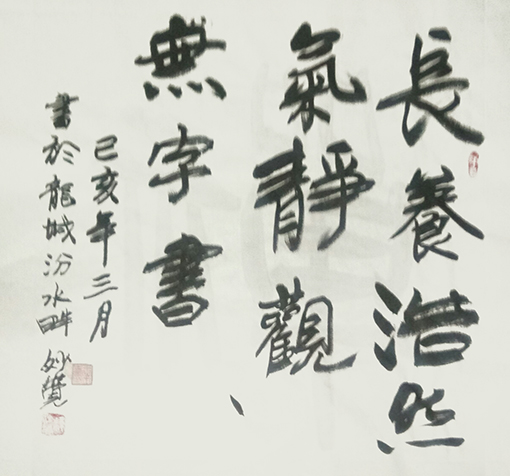 長養浩然
氣靜觀
無字書
己亥年三月
書於龍城汾水畔 妙覺